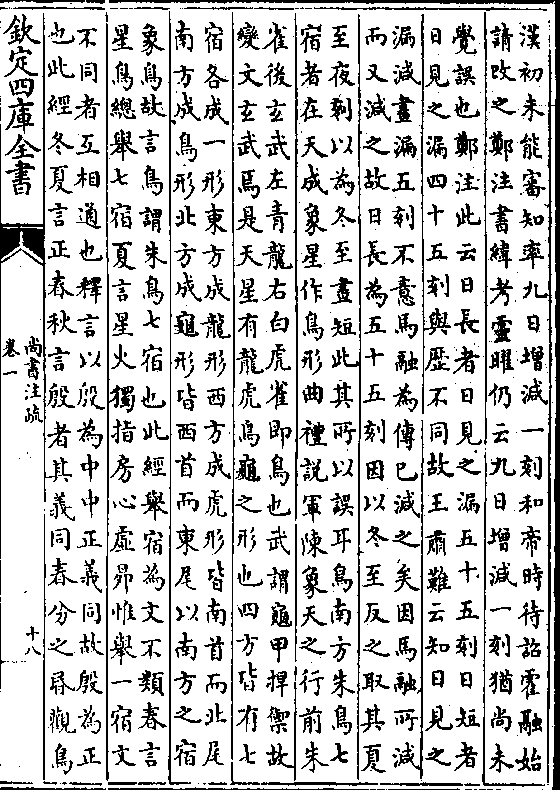 漢初未能審知率九日增減一刻和帝時待詔霍融始
請改之鄭注書緯考靈曜仍云九日增減一刻猶尚未
覺誤也鄭注此云日長者日見之漏五十五刻日短者
日見之漏四十五刻與歷不同故王肅難云知日見之
漏減晝漏五刻不意馬融為傳已減之矣因馬融所減
而又減之故日長為五十五刻因以冬至反之取其夏
至夜刻以為冬至晝短此其所以誤耳鳥南方朱鳥七
宿者在天成象星作鳥形曲禮說軍陳象天之行前朱
雀後玄武左青龍右白虎雀即鳥也武謂龜甲捍禦故
變文玄武焉是天星有龍虎鳥龜之形也四方皆有七
宿各成一形東方成龍形西方成虎形皆南首而北尾
南方成鳥形北方成龜形皆西首而東尾以南方之宿
象鳥故言鳥謂朱鳥七宿也此經舉宿為文不類春言
星鳥總舉七宿夏言星火獨指房心虛昴惟舉一宿文
不同者互相通也釋言以殷為中中正義同故殷為正
也此經冬夏言正春秋言殷者其義同春分之昏觀鳥
欽定四庫全書
尚書注疏
卷一
十八